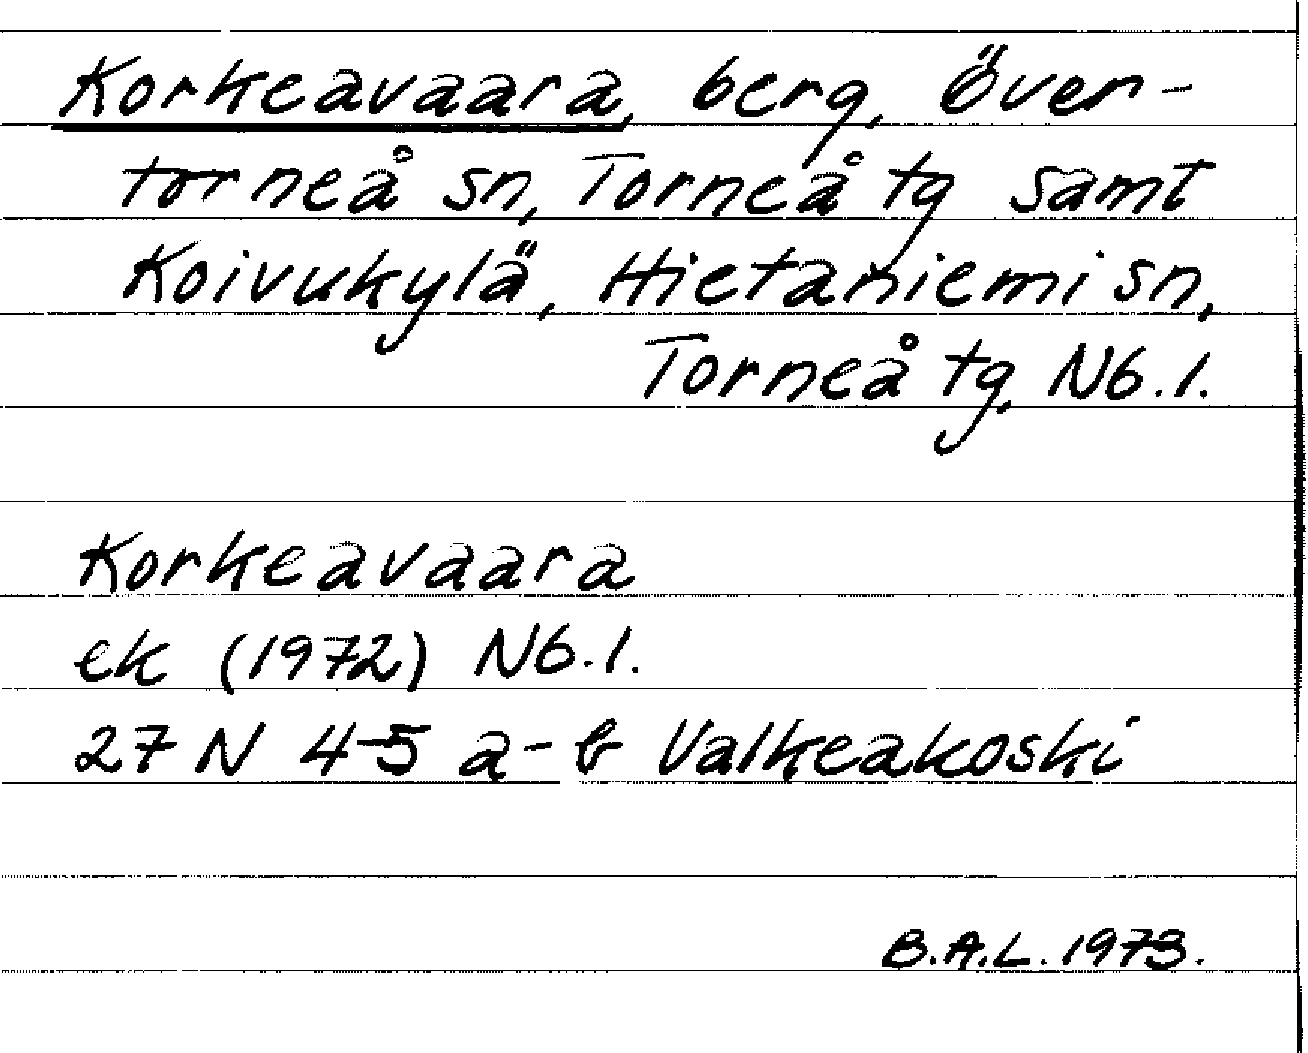 Korkeavaara, berg, Över-
torneå sn, Torneå tg samt
Koivukylä, Hietaniemi sn,
Torneå tg, Nb.l.
Korkeavaara
ek (1972) Nb.l.
27 N 4-5 a-b Valkeakoski
B.A.L. 1973.